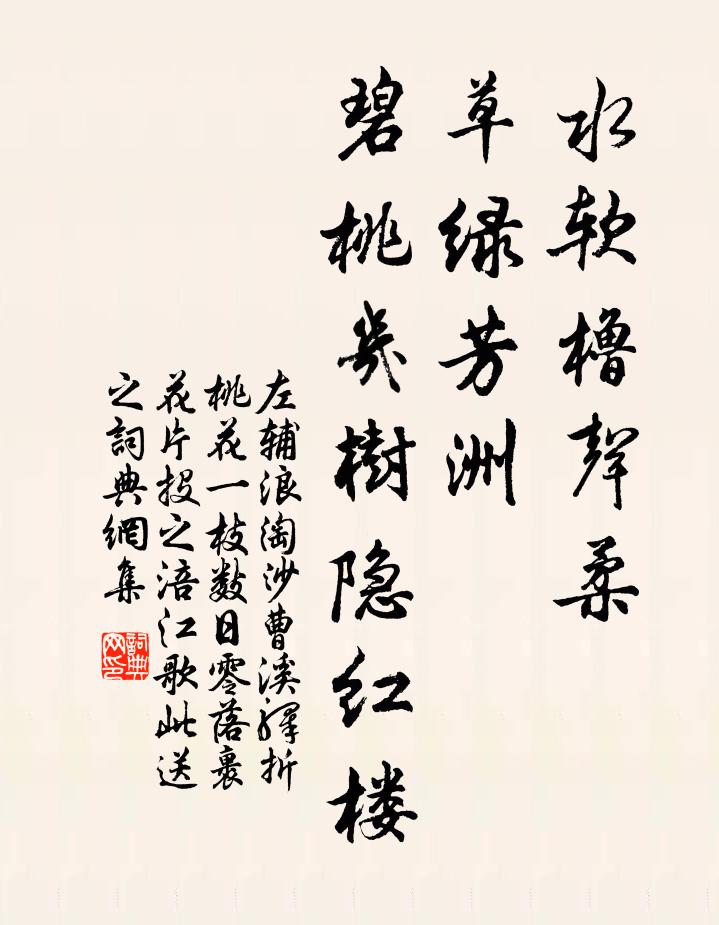 水软橹聲柔
草绿芳洲
碧桃幾樹隐红楼
左辅浪淘沙曹溪驛折
桃花一枝数日零落裹
花片投之涪江歌此送
之詞典網集
詞典网印